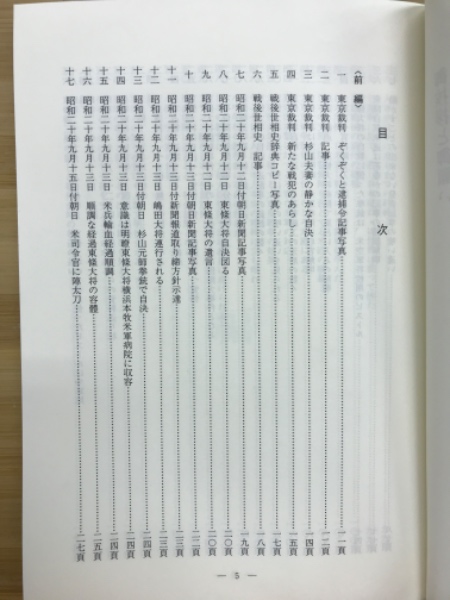 目次
(前編)
一 東京裁判 ぞくぞくと逮捕令記事写真……一一頁
二 東京裁判 記事……一二頁
三 東京裁判 杉山夫妻の静かな自決……一四頁
四 東京裁判 新たな戦犯のあらし……一五頁
五 戦後世相史辞典コピー写真……一七頁
六 戦後世相史 記事……一八頁
七 昭和二十年九月十二日付朝日新聞記事写真……一九頁
八 昭和二十年九月十二日 東條大将自決図る……二〇頁
九 昭和二十年九月十二日 東條大将の遺言……二〇頁
十 昭和二十年九月十三日付朝日新聞記事写真……二二頁
十一 昭和二十年九月十三日付新聞報道取り締方針示達……二三頁
十二 昭和二十年九月十三日 嶋田大将連行される……二三頁
十三 昭和二十年九月十三日付朝日 杉山元帥拳銃で自決……二四頁
十四 昭和二十年九月十三日 意識は明瞭東條大将横浜本牧米軍病院に収容……二四頁
十五 昭和二十年九月十三日 米兵輸血経過順調……二四頁
十六 昭和二十年九月十三日 順調な経過東條大将の容體……二五頁
十七 昭和二十年九月十五日付朝日 米司令官に陣太刀……二七頁
— 5 —